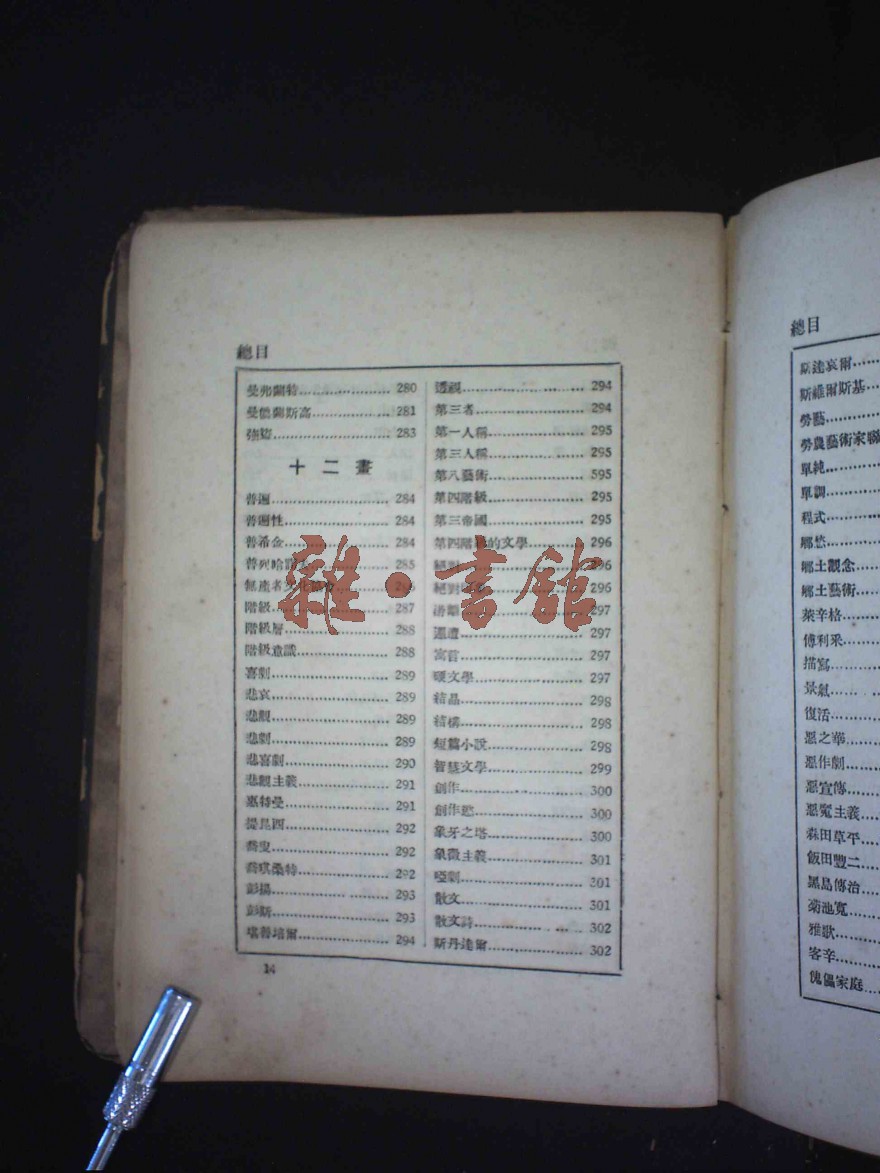 總目
曼弗蘭特 280
曼儂蘭斯高 281
強 283
十二畫
普遍 284
普遍性 284
普希金 284
普列哈 285
無產者文化協會 286
階級 287
階級層 288
階級意識 288
喜劇 289
悲哀 289
悲觀 289
悲劇 289
悲喜劇 290
悲觀主義 291
惠特曼 291
提昆西 292
喬叟 292
喬琪桑特 292
彭揚 293
彭斯 293
瑞普培爾 294
14
透視 294
第三者 294
第一人稱 295
第三人稱 295
第八藝術 595
第四階級 295
第三帝國 295
第四階級的文學 296
絕對 296
絕對 296
297
遭遇 297
寓言 297
硬文學 297
結晶 298
結構 298
短篇小說 298
智慧文學 299
創作 300
創作慾 300
象牙之塔 300
象徵主義 301
啞劇 301
散文 301
散文詩 302
斯丹達爾 302
總目
斯達哀爾
斯維爾斯基
勞藝
勞農藝術家聯
單純
單調
程式
鄉愁
鄉土觀念
鄉土藝術
萊辛格
傅利采
描寫
景氣
復活
惡之華
惡作劇
惡宣傳
惡魔主義
森田草平
飯田豐二
黑島傳治
菊池寬
雅歌
客辛
傀儡家庭
雜·書館